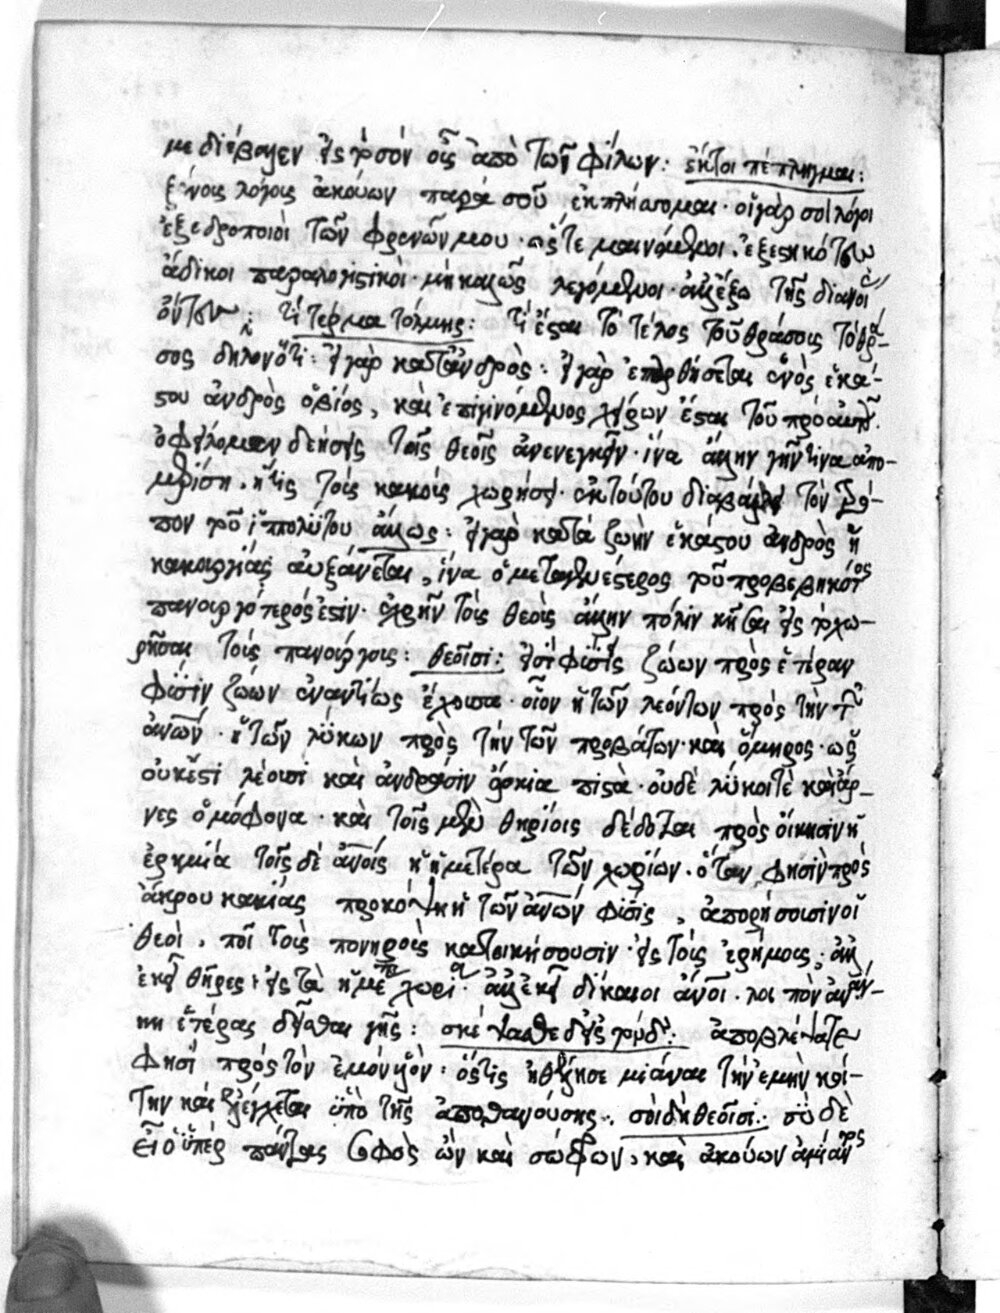 με διέβαλεν εἰς τὸ σὸν οὖς ἀπὸ τῶν φίλων: ἔκ τοι πέπληγμαι:
ξένοις λόγοις ἀκούων παρὰ σοῦ ἐκπλήττομαι· οἱ γὰρ σοὶ λόγοι
ἐξεδροποιοὶ τῶν φρενῶν μου· ὥστε μαινόμενοι. ἐξεστηκότων
ἄδικοι παραλογιστικοὶ· μὴ καλῶς λεγόμενοι· ἀλλ' ἔξω τῆς διανοί
ὄντων: τί τέρμα τόλμης: τί ἔσται τὸ τέλος τοῦ θράσους τὸ θρά-
σος δηλονότι: εἰ γὰρ κατ' ἀνδρὸς: εἰ γὰρ ἐπαρθήσεται ἑνὸς ἑκά-
στου ἀνδρὸς ὁ βίος, καὶ ἐπιγινόμενος χείρων ἔσται τοῦ πρὸ αὐτοῦ.
ὀφείλομεν δεήσεις τοῖς θεοῖς ἀνενεγκεῖν· ἵνα ἄλλην γῆν τινα ἀπο-
μερίση. ἥτις τοὺς κακοὺς χωρήσει· ἐκ τούτου διαβάλλει τὸν τρό-
πον τοῦ ἱππολύτου ἄλλως: εἰ γὰρ κατὰ ζωὴν ἑκάστου ἀνδρὸς ἡ
κακουργία αὐξάνεται, ἵνα ὁ μεταγενέστερος τοῦ προβεβηκότος
πανουργότερός ἐστιν· ἐχρῆν τοὺς θεοὺς ἄλλην πόλιν κτῆσαι εἰς τὸ χω-
ρῆσαι τοὺς πανούργους: θεοῖσι: εἰσὶ φύσεις ζώων πρὸς ἑτέραν
φύσιν ζώων ἐναντίως ἔχουσα· οἷον ἡ τῶν λεόντων πρὸς τὴν τῶν
ἀνῶν· ἡ τῶν λύκων πρὸς τὴν τῶν προβάτων· καὶ ὅμηρος· ὡς
οὐκ ἔστι λέουσι καὶ ἀνδράσιν ὅρκια πιστὰ· οὐδὲ λύκοι τὲ καὶ ἄρ-
νες ὁμόφονα· καὶ τοῖς μὲν θηρίοις δέδοται πρὸς οἴκησιν ἡ
ἐρημία τοῖς δὲ ἀνοις ἡ ἡμετέρα τῶν χωρίων. ὅταν, φησὶν πρὸς
ἄκρου κακίας προκόψη ἡ τῶν ἀνων φύσις, ἀπορήσουσιν οἱ
θεοὶ. ποῖ τοὺς πονηροὺς κατοικήσουσιν· εἰς τοὺς ἐρήμους, ἀλλ'
ἐκεῖ θῆρες· εἰς τὰ ἥμε χωρία· ἀλλ' ἐκεῖ δίκαιοι ἄνοι. λοιπὸν ἀνάγ-
κη ἑτέρας δεῖσθαι γῆς: σκέψασθε δ' εἰς τόνδε: ἀποβλέψατε
φησὶ πρὸς τὸν ἐμὸν υἱὸν· ὅστις ἠθέλησε μιάναι τὴν ἐμὴν κοί-
την καὶ ἐλέγχεται ὑπὸ τῆς ἀποθανούσης: σὺ δὴ θεοῖσι: σὺ δὲ
εἶ ὁ ὑπὲρ πάντας σοφὸς ὢν καὶ σώφρων, καὶ ἀκούων ἀμίαντος